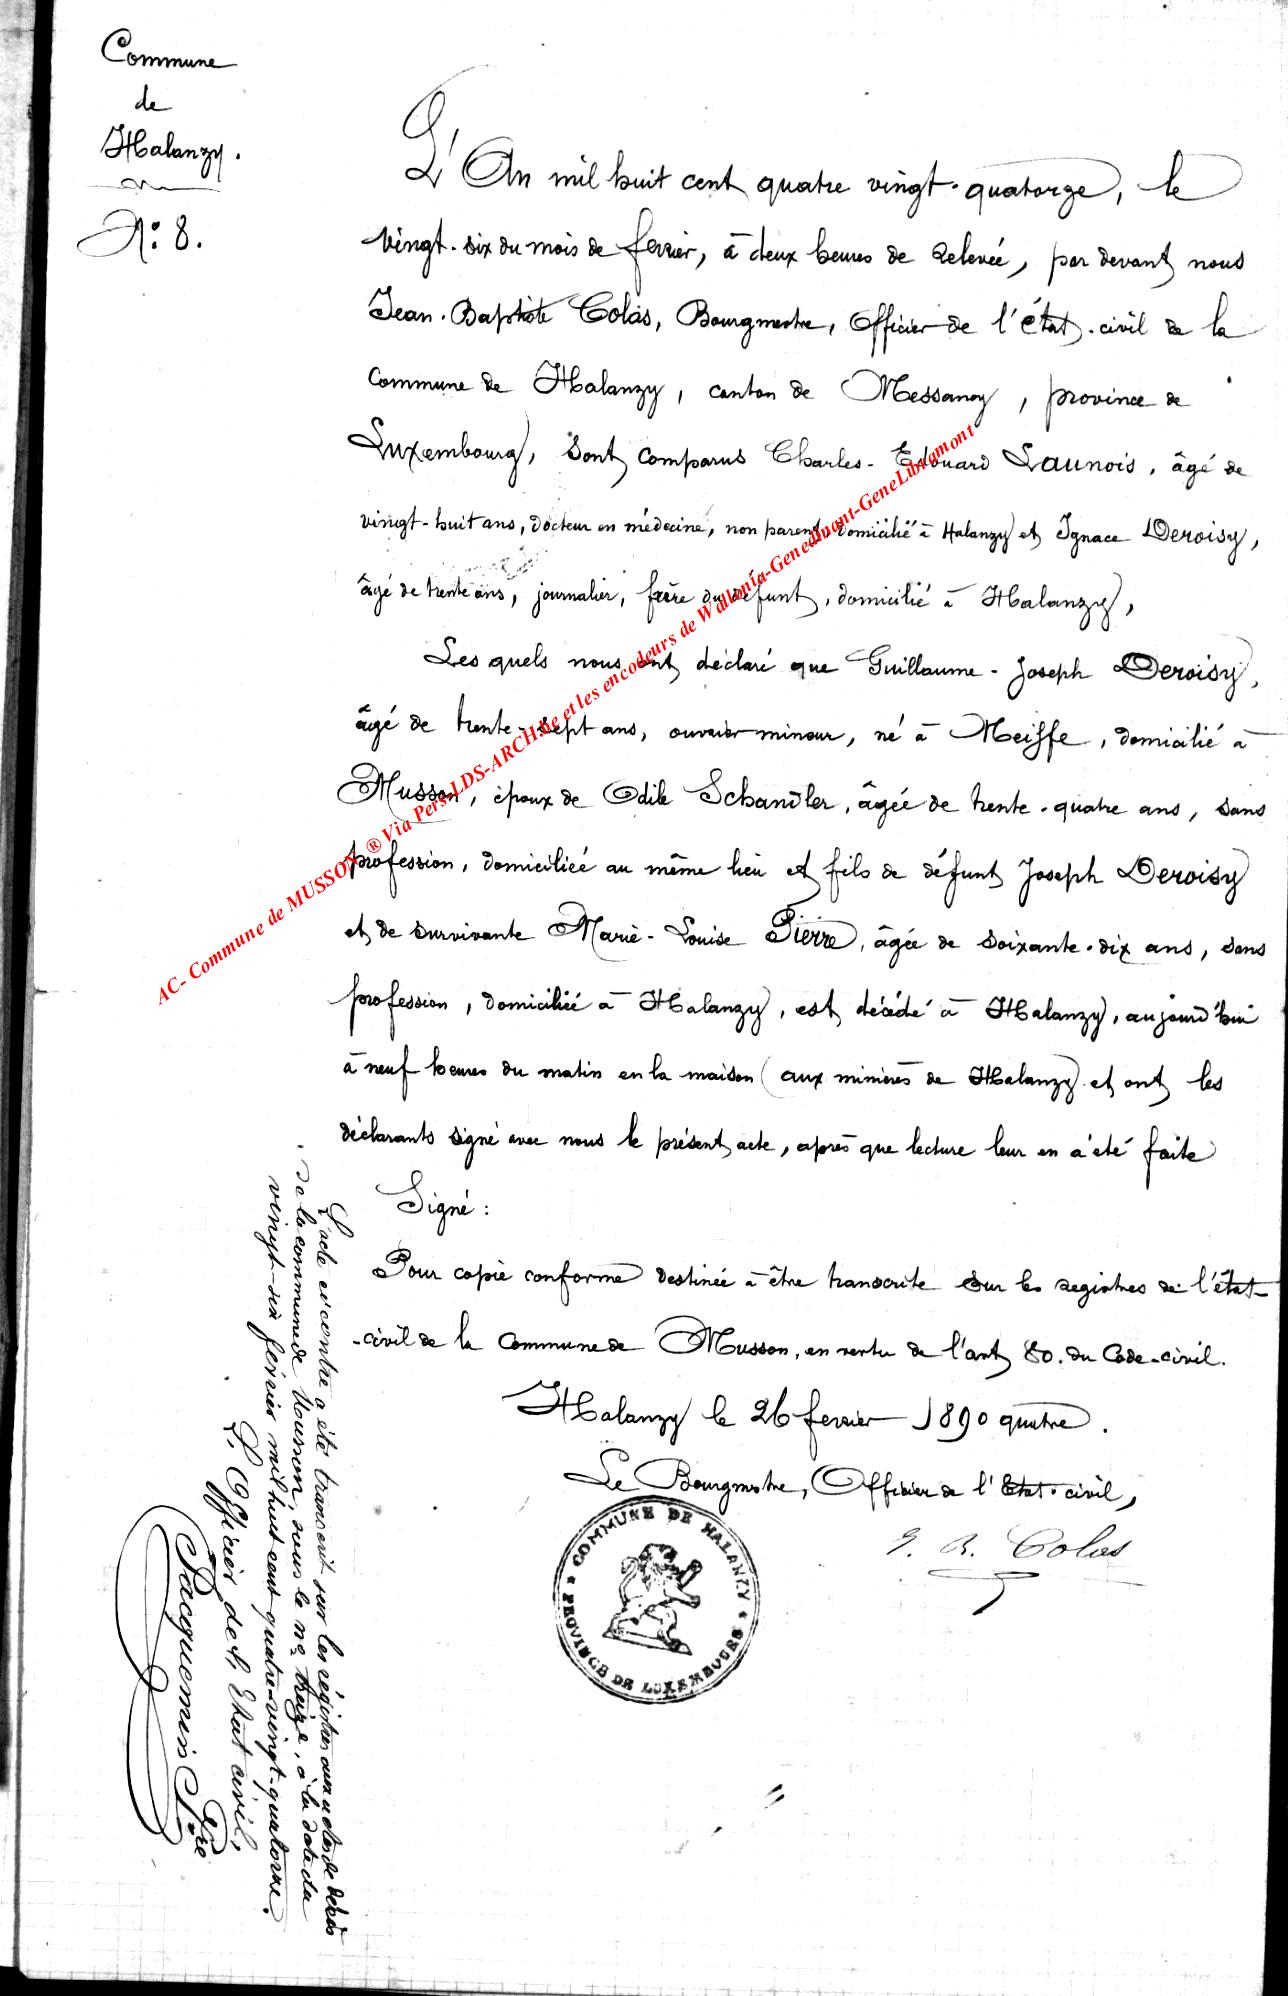 Commune
de
Halanzy.
N° 8.
L'An mil huit cent quatre vingt-quatorze, le
vingt-six du mois de fevrier, à deux heures de relevée, par devant nous
Jean-Baptiste Colas, Bourgmestre, Officier de l'état-civil de la
Commune de Halanzy, canton de Messancy, province de
Luxembourg, sont comparus Charles-Edouard Launois, âgé de
vingt-huit ans, docteur en médecine, non parent, domicilié à Halanzy et Ignace Deroisy,
âgé de trente ans, journalier, frère du défunt, domicilié à Halanzy,
Les quels nous ont déclaré que Guillaume-Joseph Deroisy,
âgé de trente-sept ans, ouvrier mineur, né à Meiffe, domicilié à
Musson, époux de Odile Schandler, âgée de trente-quatre ans, sans
profession, domiciliée au même lieu et fils de défunt Joseph Deroisy
et de survivante Marie-Louise Pierre, âgée de soixante-dix ans, sans
profession, domiciliée à Halanzy, est décédé à Halanzy, aujourd'hui
à neuf heures du matin en la maison aux minières de Halanzy et ont les
déclarants signé avec nous le présent acte, après que lecture leur en a été faite
Signé :
Pour copie conforme destinée à être transcrite sur les registres de l'état-
-civil de la Commune de Musson, en vertu de l'art 80. du Code-civil.
Halanzy le 26 fevrier 1890 quatre.
Le Bourgmestre, Officier de l'Etat-civil,
J. B. Colas
COMMUNE DE HALANZY
PROVINCE DE LUXEMBOURG
L'acte ci contre a été transcrit sur les régistres aux actes de décès
de la commune de Musson, sous le no treize, à la date du
vingt-six fevrier mil huit cent quatre-vingt-quatorze.
L'Officier de l'Etat civil,
Jacquemin Pre
AC- Commune de MUSSON ® Via Pers-LDS-ARCH.be et les encodeurs de Wallonia-Genedinant-GeneLibramont